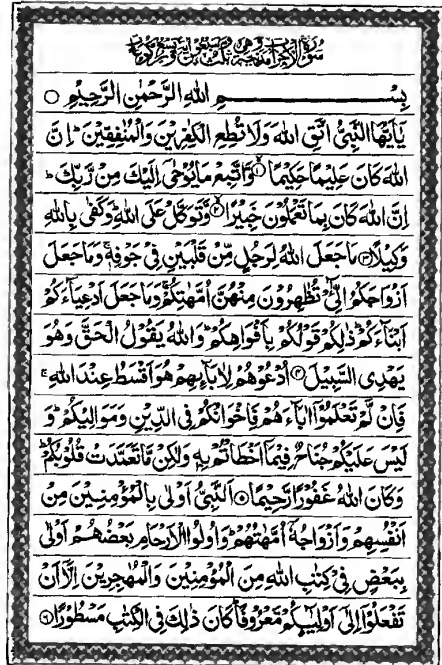 سُوْرَةُ الْاَحْزَابِ مَدَنِيَّةٌ وَّهِيَ ثَلٰثٌ وَّسَبْعُوْنَ اٰيَةً وَّتِسْعُ رُكُوْعَاتٍ
بِسْمِ اللهِ الرَّحْمٰنِ الرَّحِيْمِ ○
يٰۤاَيُّهَا النَّبِيُّ اتَّقِ اللهَ وَلَا تُطِعِ الْكٰفِرِيْنَ وَالْمُنٰفِقِيْنَ ؕ اِنَّ
اللهَ كَانَ عَلِيْمًا حَكِيْمًا ۙ﴿۱﴾ وَّاتَّبِعْ مَا يُوْحٰۤى اِلَيْكَ مِنْ رَّبِّكَ ؕ
اِنَّ اللهَ كَانَ بِمَا تَعْمَلُوْنَ خَبِيْرًا ۙ﴿۲﴾ وَّتَوَكَّلْ عَلَى اللهِ ؕ وَكَفٰى بِاللهِ
وَكِيْلًا ﴿۳﴾ مَا جَعَلَ اللهُ لِرَجُلٍ مِّنْ قَلْبَيْنِ فِيْ جَوْفِهٖ ۚ وَمَا جَعَلَ
اَزْوَاجَكُمُ الّٰٓـِٔيْ تُظٰهِرُوْنَ مِنْهُنَّ اُمَّهٰتِكُمْ ۚ وَمَا جَعَلَ اَدْعِيَآءَكُمْ
اَبْنَآءَكُمْ ؕ ذٰلِكُمْ قَوْلُكُمْ بِاَفْوَاهِكُمْ ؕ وَاللهُ يَقُوْلُ الْحَقَّ وَهُوَ
يَهْدِى السَّبِيْلَ ﴿۴﴾ اُدْعُوْهُمْ لِاٰبَآئِهِمْ هُوَ اَقْسَطُ عِنْدَ اللهِ ۚ
فَاِنْ لَّمْ تَعْلَمُوْۤا اٰبَآءَهُمْ فَاِخْوَانُكُمْ فِى الدِّيْنِ وَمَوَالِيْكُمْ ؕ وَ
لَيْسَ عَلَيْكُمْ جُنَاحٌ فِيْمَاۤ اَخْطَاْتُمْ بِهٖ وَلٰكِنْ مَّا تَعَمَّدَتْ قُلُوْبُكُمْ ؕ
وَكَانَ اللهُ غَفُوْرًا رَّحِيْمًا ﴿۵﴾ اَلنَّبِيُّ اَوْلٰى بِالْمُؤْمِنِيْنَ مِنْ
اَنْفُسِهِمْ وَاَزْوَاجُهٗۤ اُمَّهٰتُهُمْ ؕ وَاُولُوا الْاَرْحَامِ بَعْضُهُمْ اَوْلٰى
بِبَعْضٍ فِيْ كِتٰبِ اللهِ مِنَ الْمُؤْمِنِيْنَ وَالْمُهٰجِرِيْنَ اِلَّاۤ اَنْ
تَفْعَلُوْۤا اِلٰۤى اَوْلِيٰٓئِكُمْ مَّعْرُوْفًا ؕ كَانَ ذٰلِكَ فِى الْكِتٰبِ مَسْطُوْرًا ﴿۶﴾